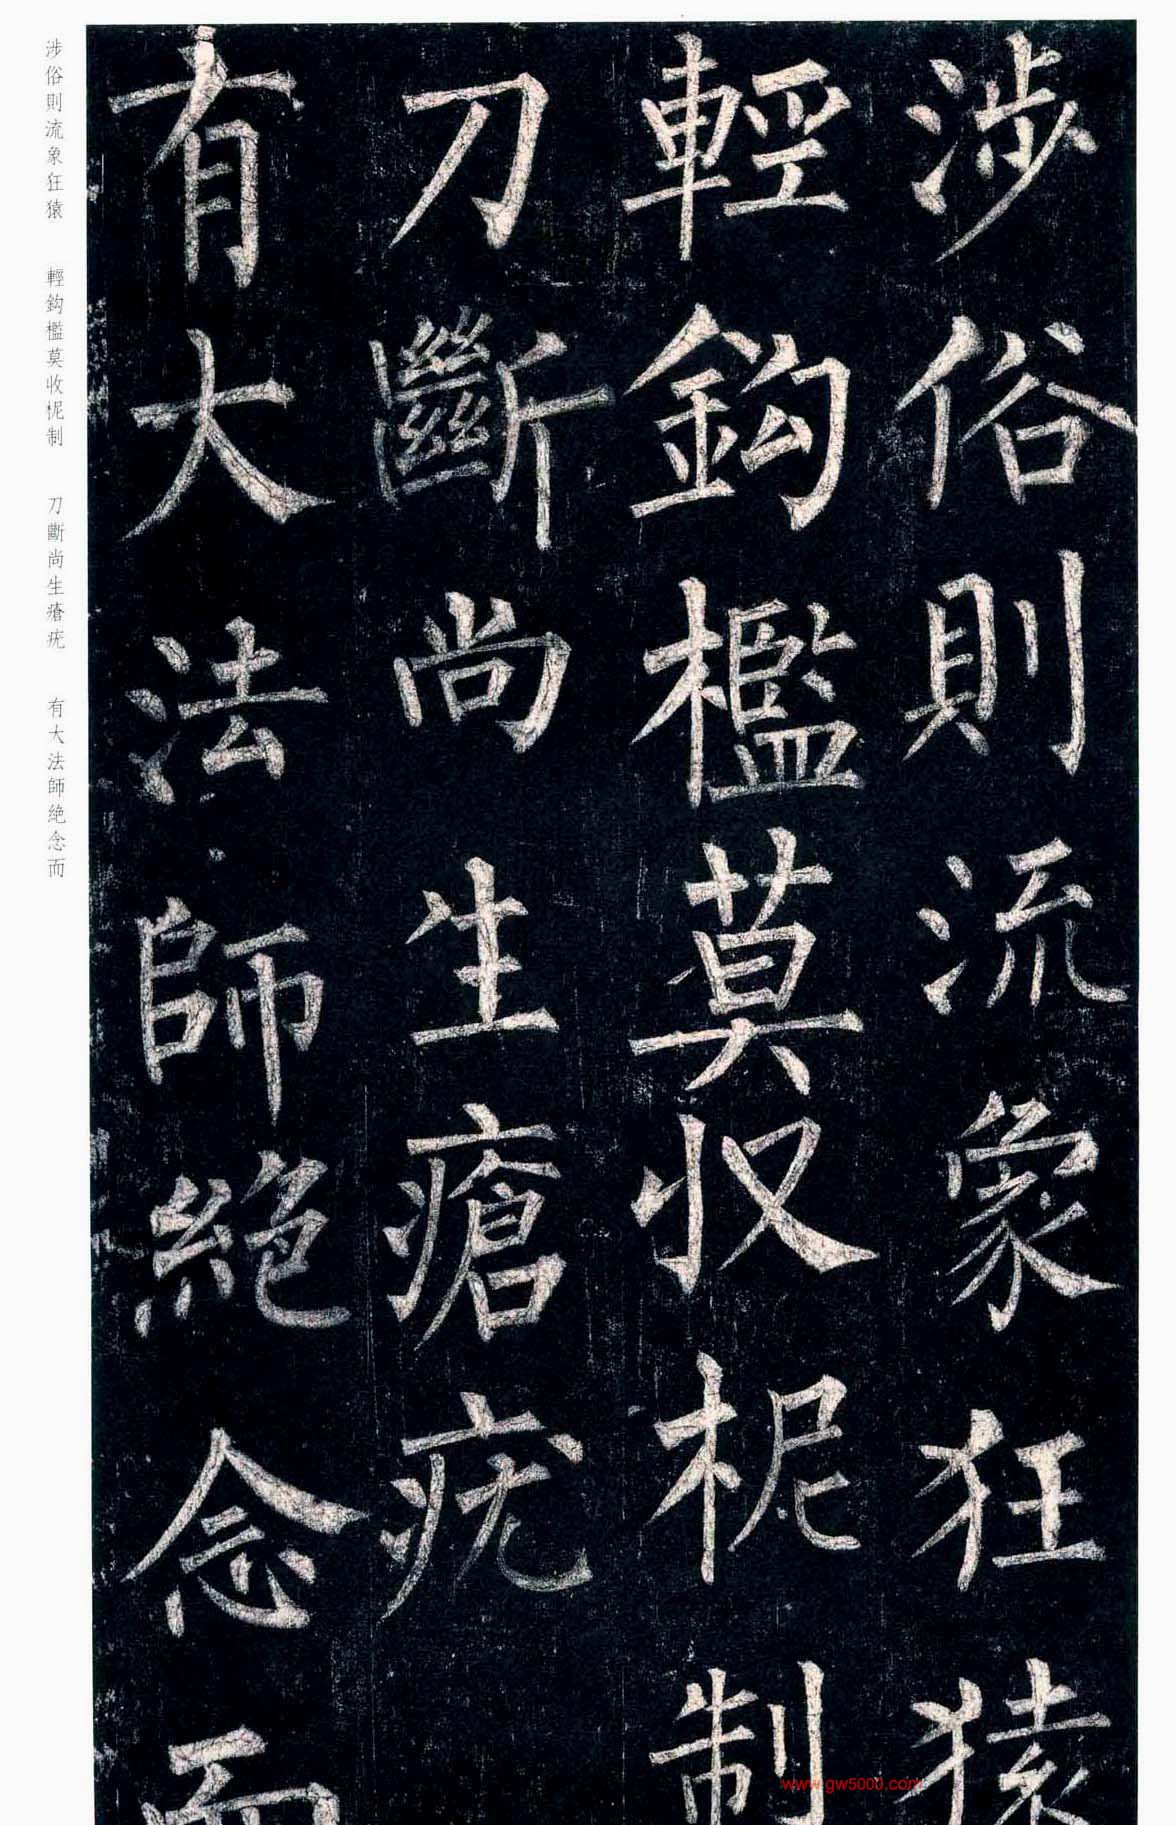 涉俗則流象狂猿
輕鈎檻莫收柅制
刀斷尚生瘡疣
有大法師絶念而
涉俗則流象狂猿 輕鈎檻莫收柅制 刀斷尚生瘡疣 有大法師絶念而
www.gw5000.com